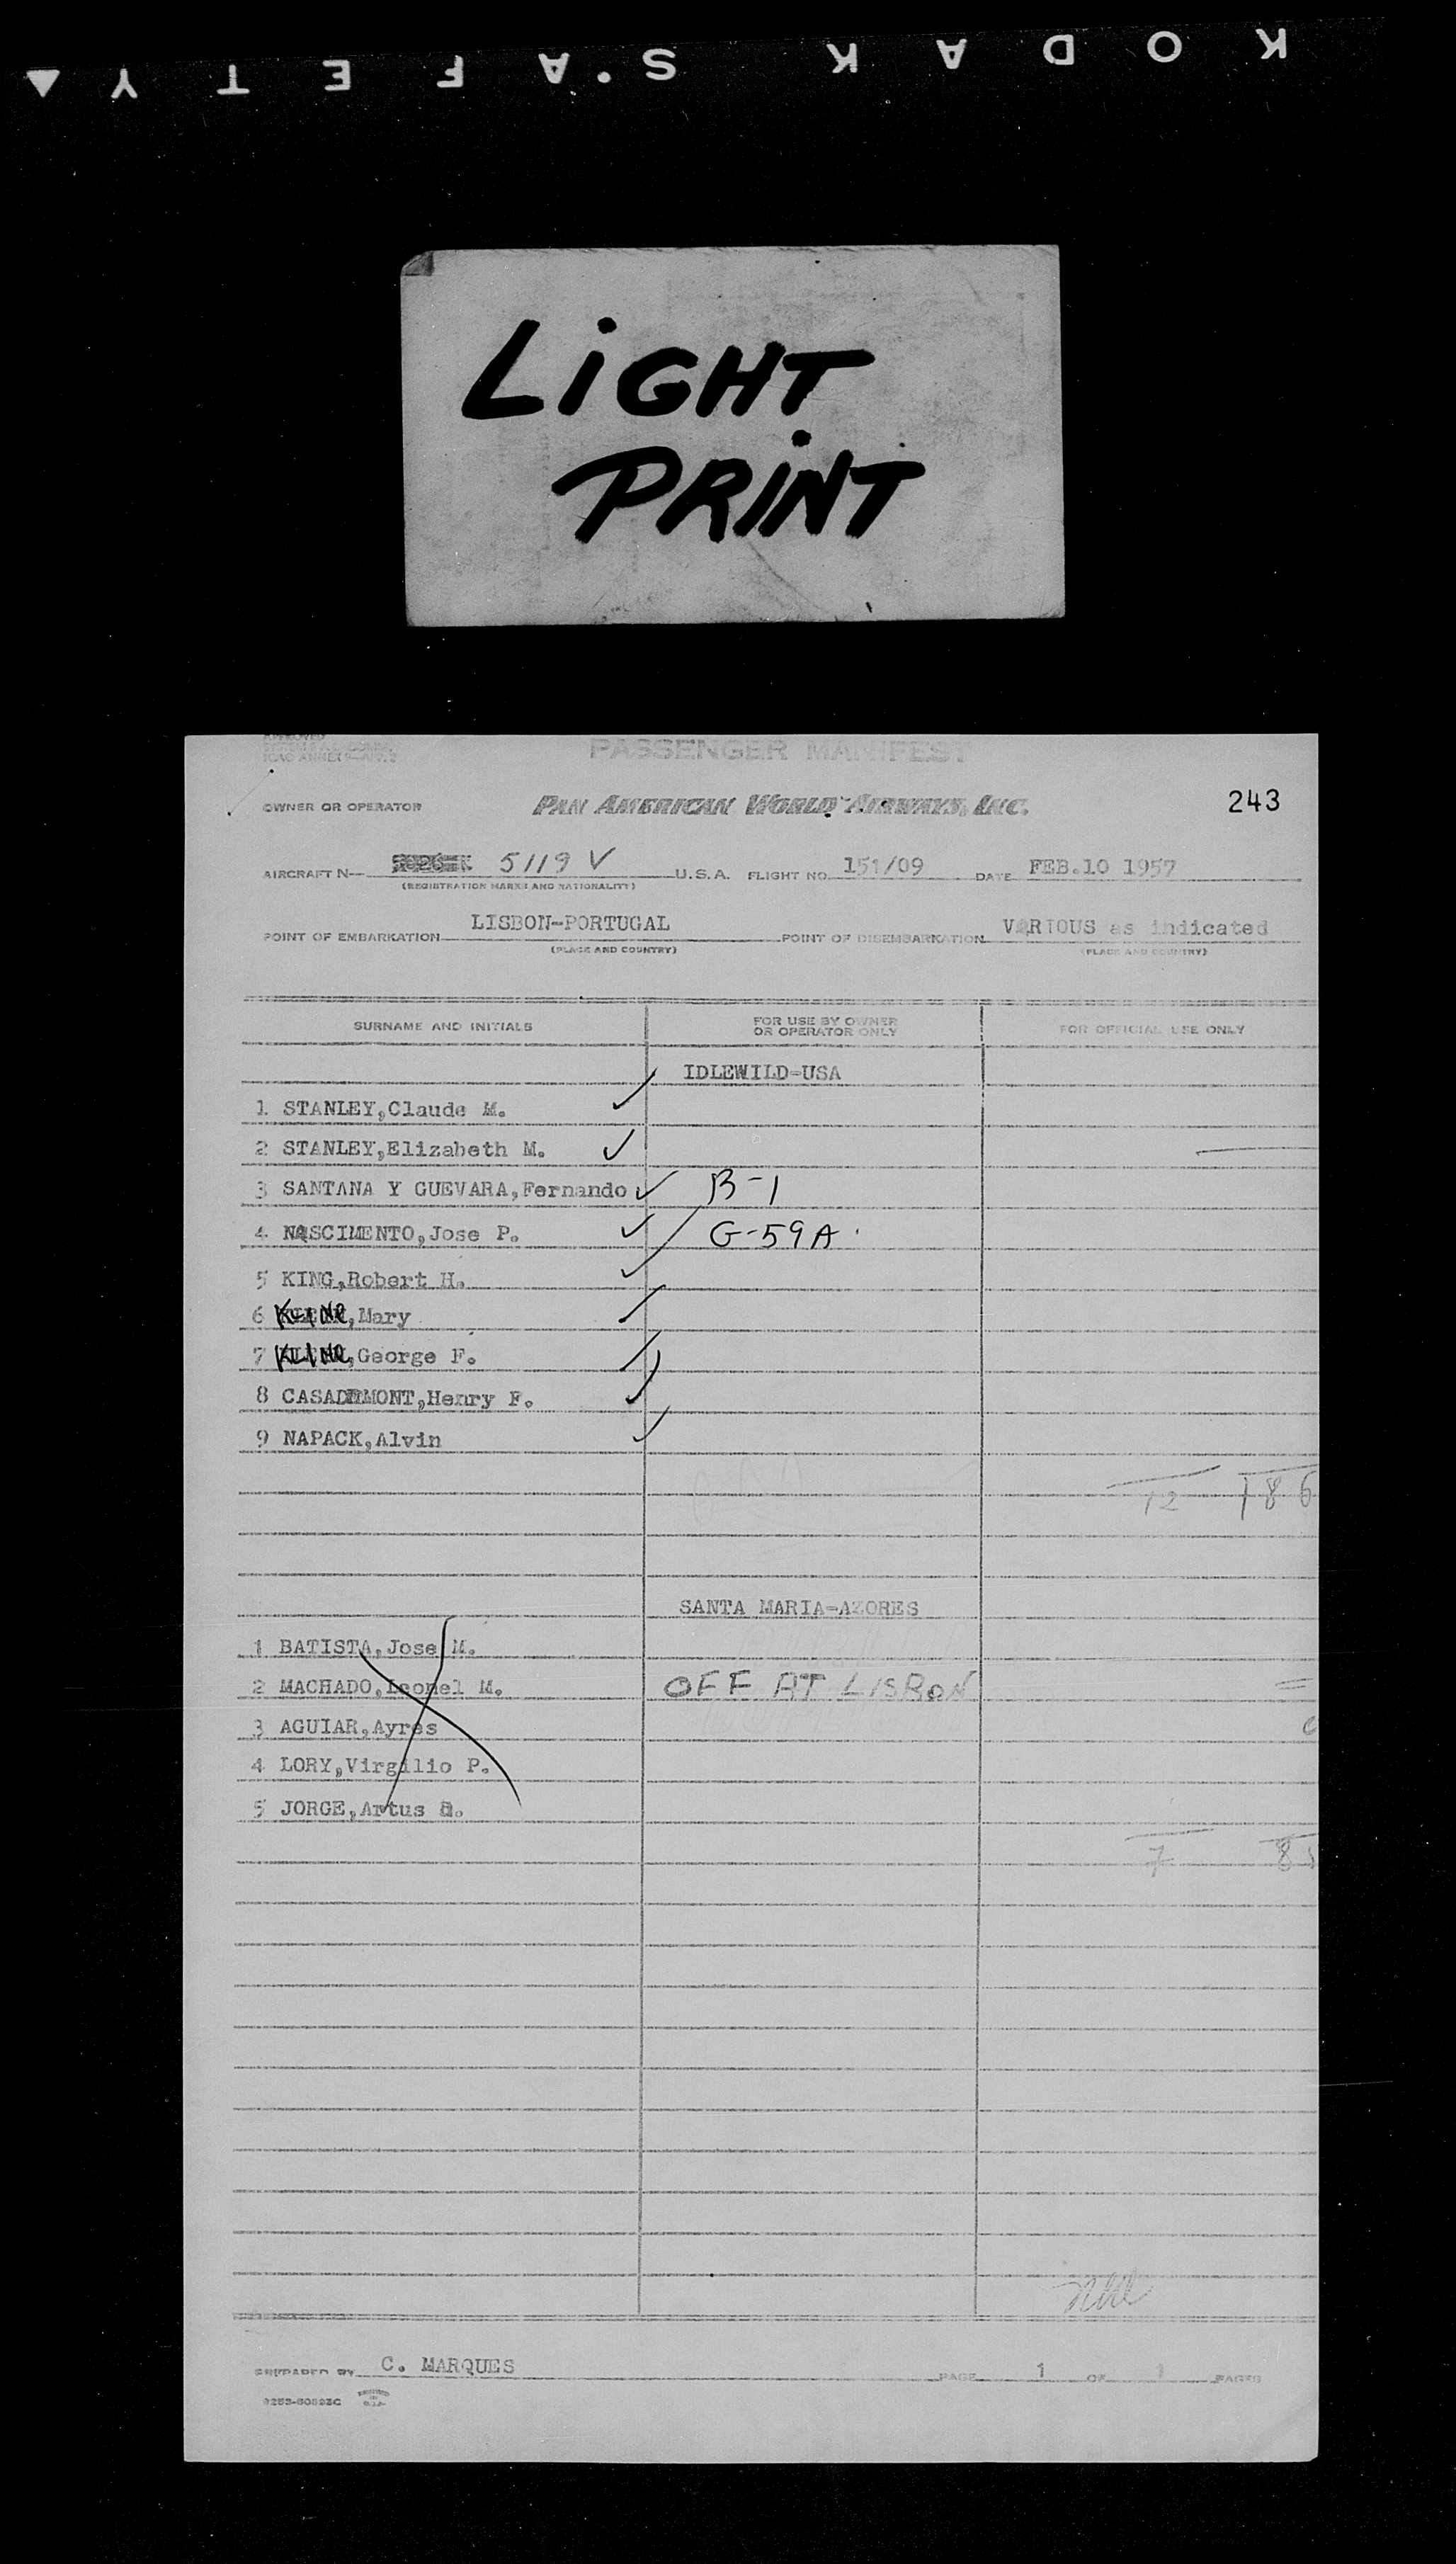 KODAK S'AFETY
LiGHT
PRiNT
APPROVED
ICAO ANNEX 9
PASSENGER MANIFEST
OWNER OR OPERATOR PAN AMERICAN WORLD AIRWAYS, INC. 243
AIRCRAFT N— 5119 V U.S.A. FLIGHT NO. 151/09 DATE FEB.10 1957
(REGISTRATION MARKS AND NATIONALITY)
POINT OF EMBARKATION LISBON-PORTUGAL POINT OF DISEMBARKATION VARIOUS as indicated
(PLACE AND COUNTRY) (PLACE AND COUNTRY)
SURNAME AND INITIALS FOR USE BY OWNER OR OPERATOR ONLY FOR OFFICIAL USE ONLY
IDLEWILD-USA
1 STANLEY,Claude M.
2 STANLEY,Elizabeth M.
3 SANTANA Y GUEVARA,Fernando B-1
4 NASCIMENTO,Jose P. G-59A
5 KING,Robert H.
6 KLINE,Mary
7 KLINE,George F.
8 CASADEMONT,Henry F.
9 NAPACK,Alvin
12 186
SANTA MARIA-AZORES
1 BATISTA,Jose M.
2 MACHADO,Leonel M. OFF AT LISBON
3 AGUIAR,Ayres
4 LORY,Virgilio P.
5 JORGE,Artus
7 85
PREPARED BY C. MARQUES PAGE 1 OF 1 PAGES